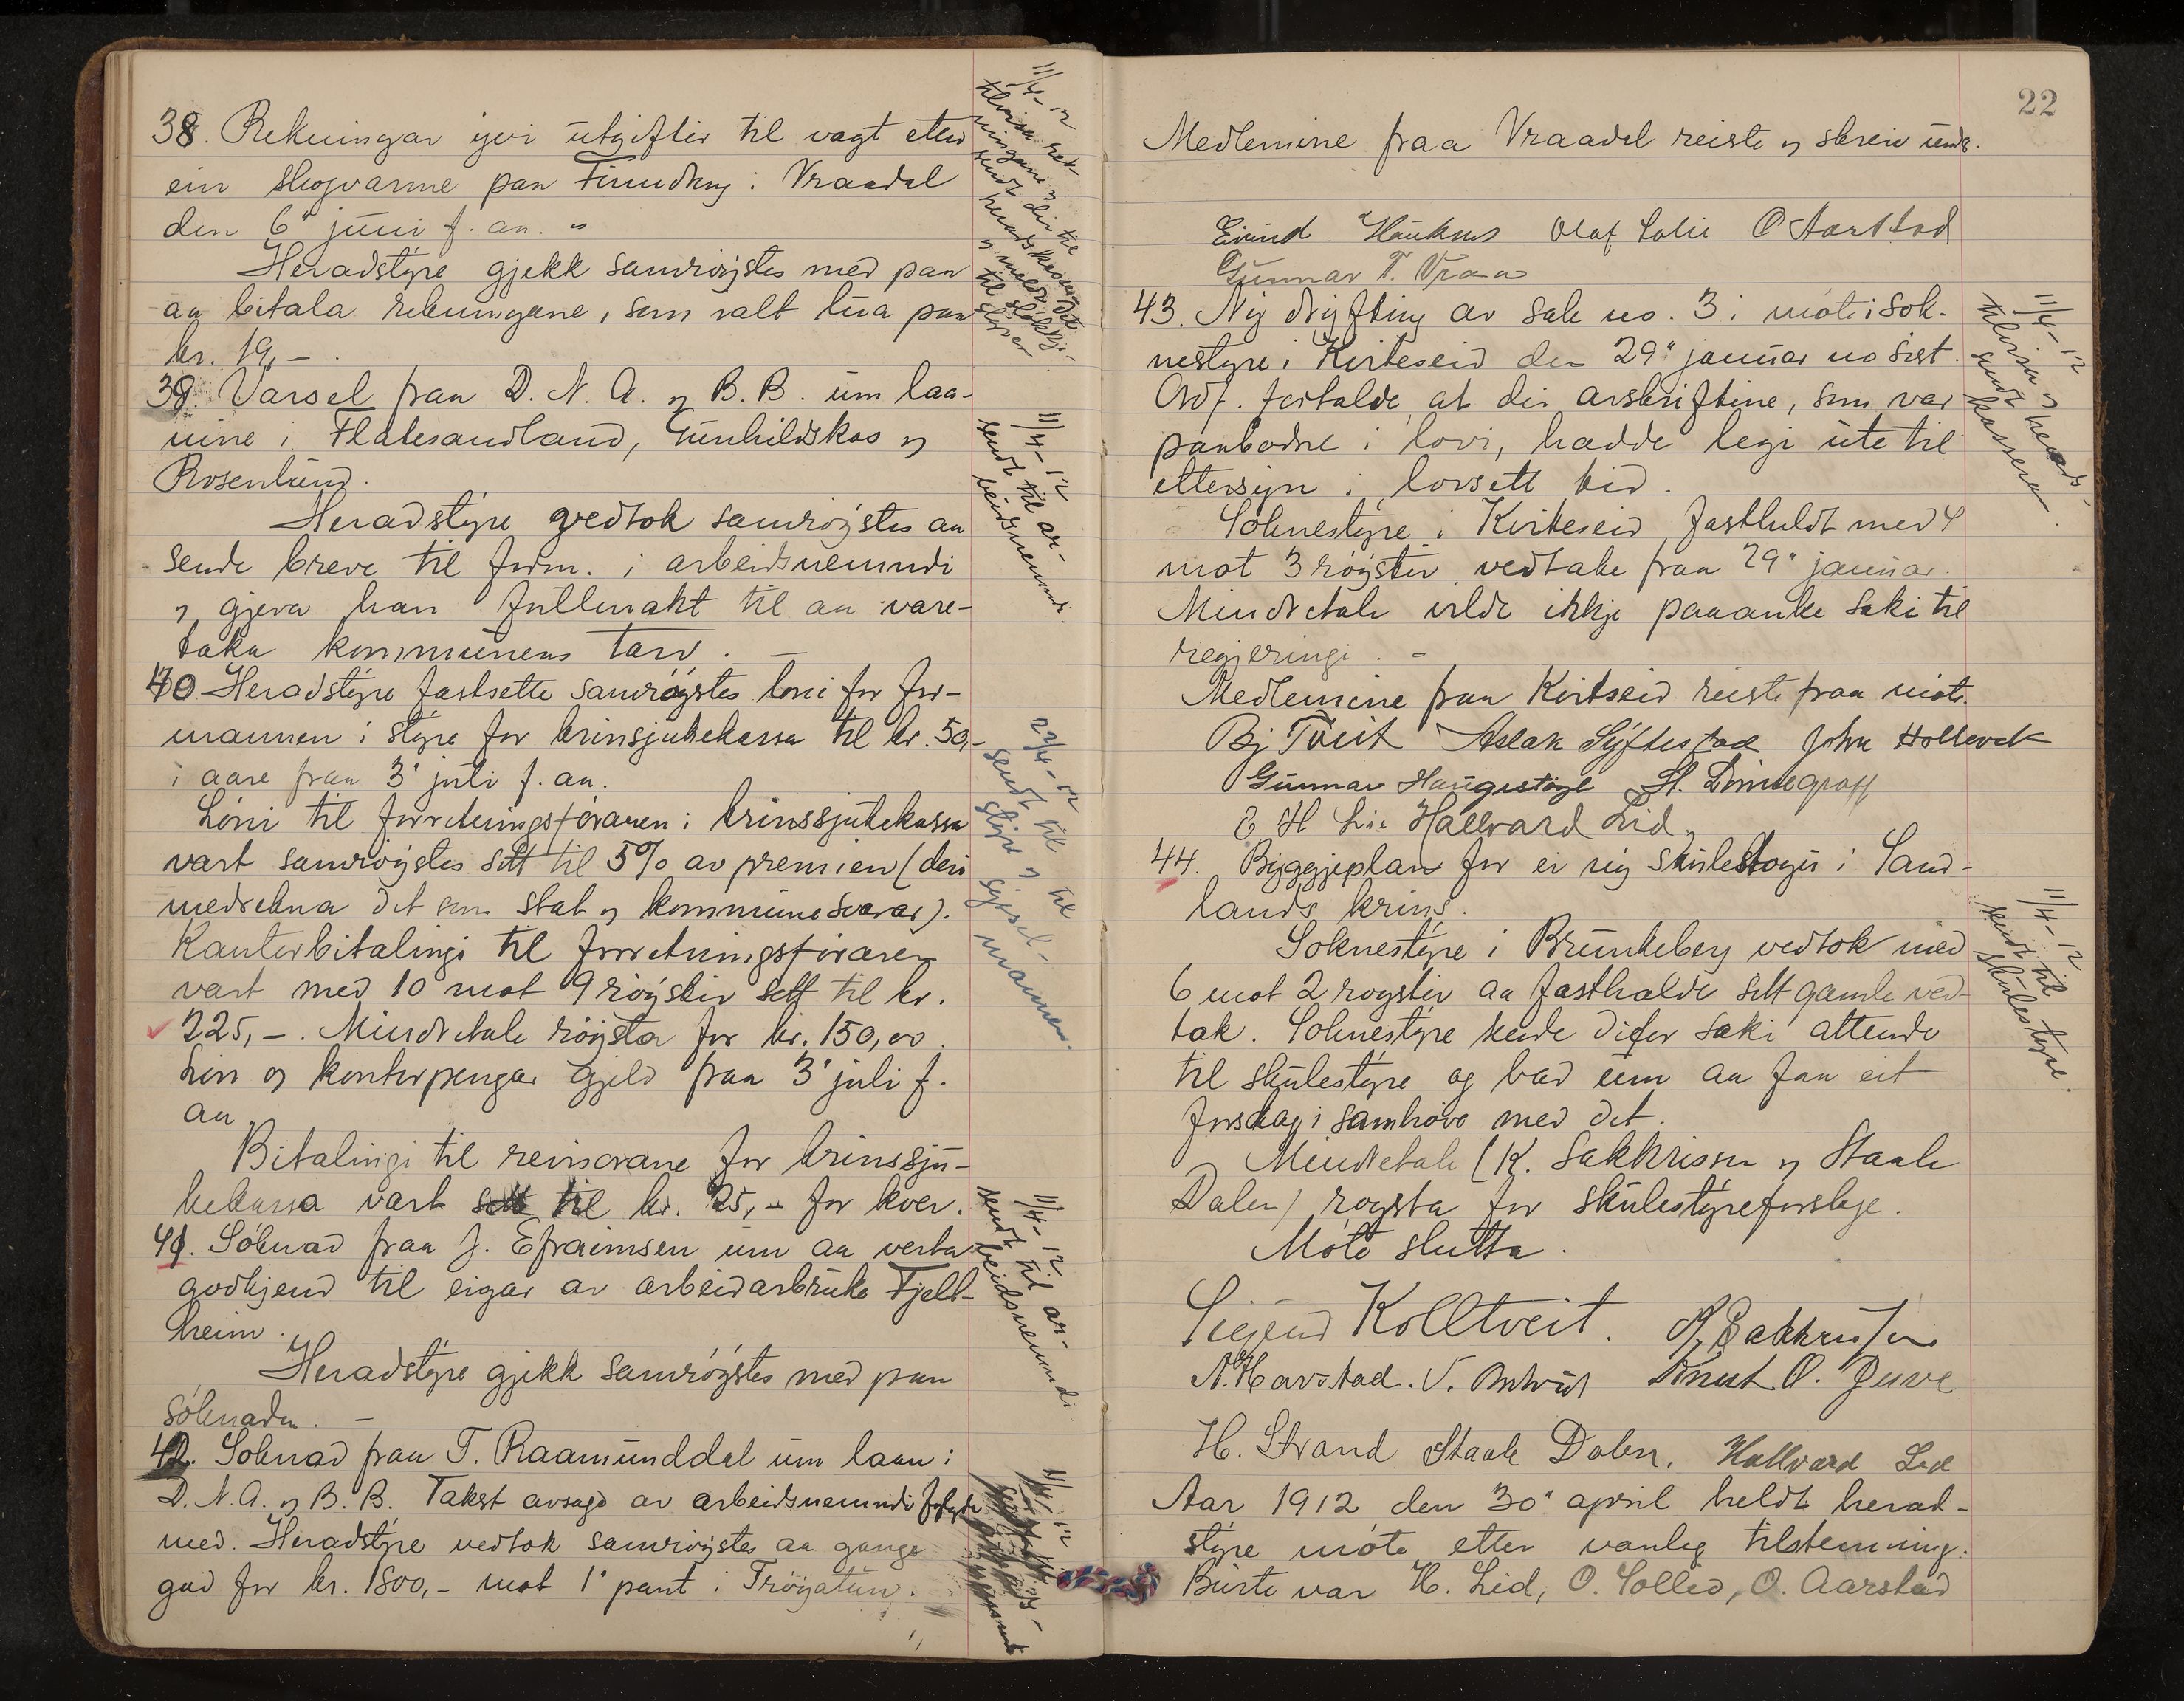 38. Rekningar yvi utgifter til vagt etter
ein skogvarme paa Finndrug i Vraadal
den 6" juni f. aa. "
Heradstyre gjekk samrøystes med paa
aa bitala rekningane, som valt lua paa
kr. 19,-.
39. Varsel fraa D. N. A. og B. B. um laa-
nine i Flatesandland, Gunhildskos og
Rosenlund.
Heradstyre vedtok samrøystes aa
sende breve til form. i arbeidsnemndi
og gjeva han fullmakt til aa vare-
taka kommunens tarv. —
40 Heradstyre fastsette samrøystes løni for for-
mannen i styre for krinsjukekassa til kr. 50,-
i aare fraa 3' juli f. aa.
Løni til forretningsføraren i krinssjukekassa
vart samrøystes sett til 5% av premien (deri
medrekna det som stat og kommune svarar).
Kontorbitalingi til forretningsføraren
vart med 10 mot 9 røyster sett til kr.
225,-. Mindretale røysta for kr. 150,00.
Løn og kontorpengar gjeld fraa 3' juli f.
aa.
Bitalingi til revisorane for krinssju-
kekassa vart sett til kr. 25,- for kver.
41. Søknad fraa J. Efraimsen um aa verta
godkjend til eigar av arbeidarbruke Fjell-
heim.
Heradstyre gjekk samrøystes med paa
søknaden. —
42. Søknad fraa T. Raamunddal um laan i
D. N. A. og B. B. Takst avsagd av arbeidsnemndi fylgde
med. Heradstyre vedtok samrøystes aa ganga
god for kr. 1800,- mot 1' pant i Trøyatun.
11/4-12
tilvisa rek-
ningane og
sendt dei til
heradskasserar
og meldt det
til
styren
11/4-12
sendt til ar-
beidsnemndi.
22/4-12
sendt til
styre og til
sysel-
mannen.
11/4-12
sendt til ar-
beidsnemndi.
11/4-12
22
Medlemine fraa Vraadal reiste og skreiv unde.
Eivind Hauknes Olaf Solie O Aarstad
Gunnar T. Vraa
43. Ny drøfting av sak no. 3 i møte i sok-
nestyre i Kviteseid den 29" januar no sist.
Ordf. fortalde at dei avskriftine, som var
paabodne i lovi, hadde legi ute til
ettersyn i lovsett tid.
Soknestyre i Kviteseid fastheldt med 4
mot 3 røyster vedtake fraa 29" januar.
Mindretale vilde ikkje paaanke saki til
regjeringi. -
Medlemine fraa Kvitseid reiste fraa møte.
Bj Tveit Aslak Syftestad John Holtevek
Gunnar Haugestøyl H. Dønnegraff
E H Lie Hallvard Lid.
44. Byggjeplan for ei ny skulestogu i Sand-
lands krins.
Soknestyre i Brunkeberg vedtok med
6 mot 2 røyster aa fasthalde sitt gamle ved-
tak. Soknestyre sende difor saki attende
til skulestyre og bad um aa faa eit
forslag i samhøve med det.
Mindretale (K. Sakkrissen og Staale
Dalen) røysta for skulestyreforslage.
Møte slutta.
Sigjend Kolltveit. K. Sakkrissen
N. Havstad. V. Knut O. Juve
H. Strand Staale Dalen. Hallvard Lid
Aar 1912 den 30" april heldt herad-
styre møte etter vanleg tilstemning.
Burte var H. Lid, O. Sollid, O. Aarstad
11/4-12
tilvisa og
sendt herads-
kasseraren.
11/4-12
sendt til
skulestyre.